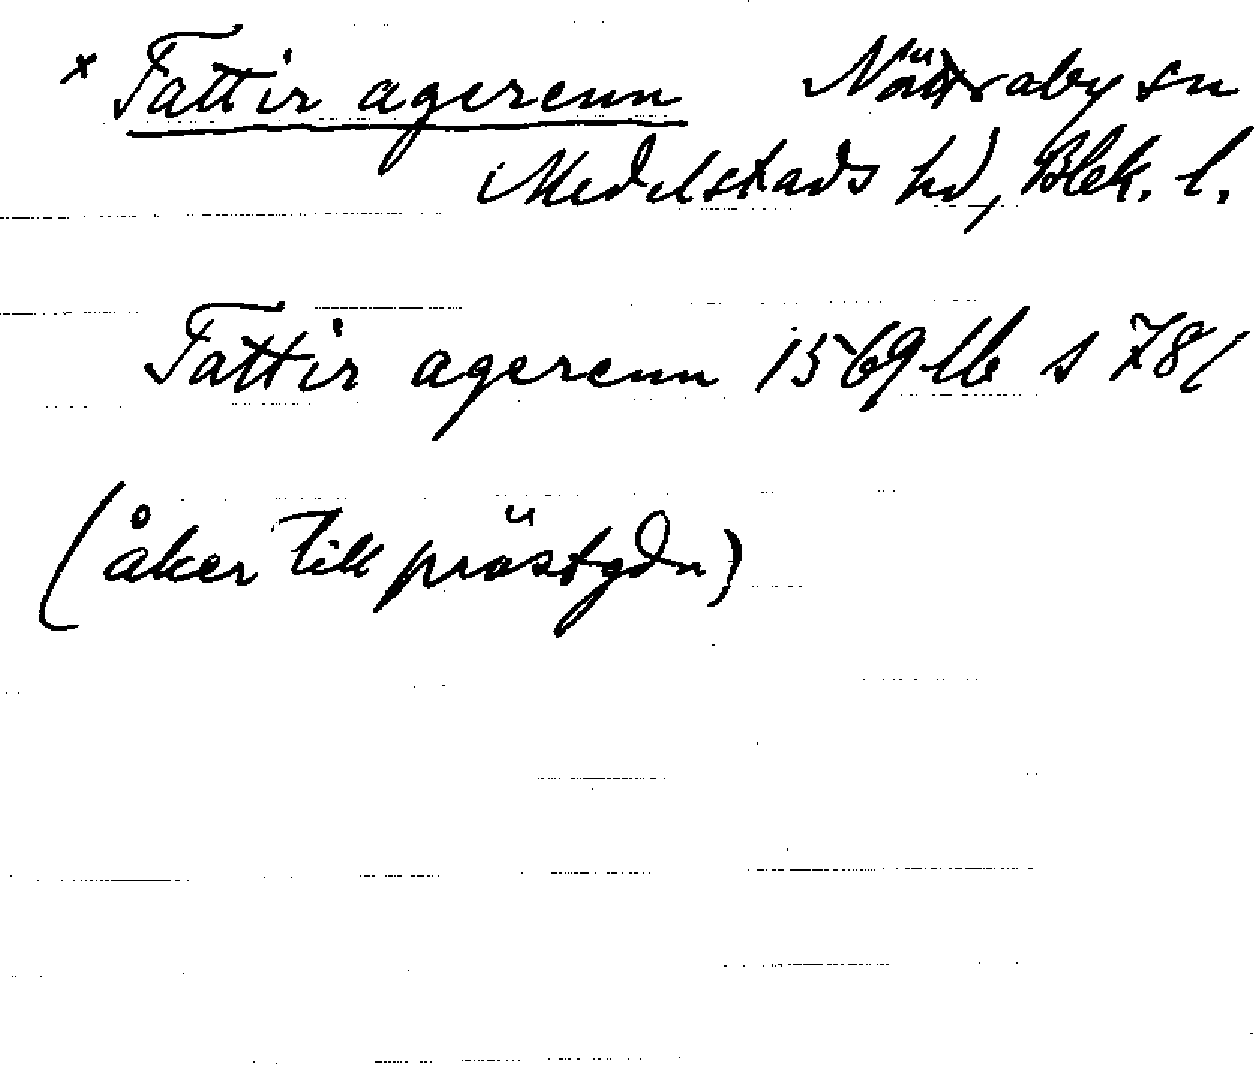 x Tattir agerenn Nättraby sn
Medelstads hd, Blek. l.
Tattir agerenn 1569 lb s 781
(åker till prästgdn)